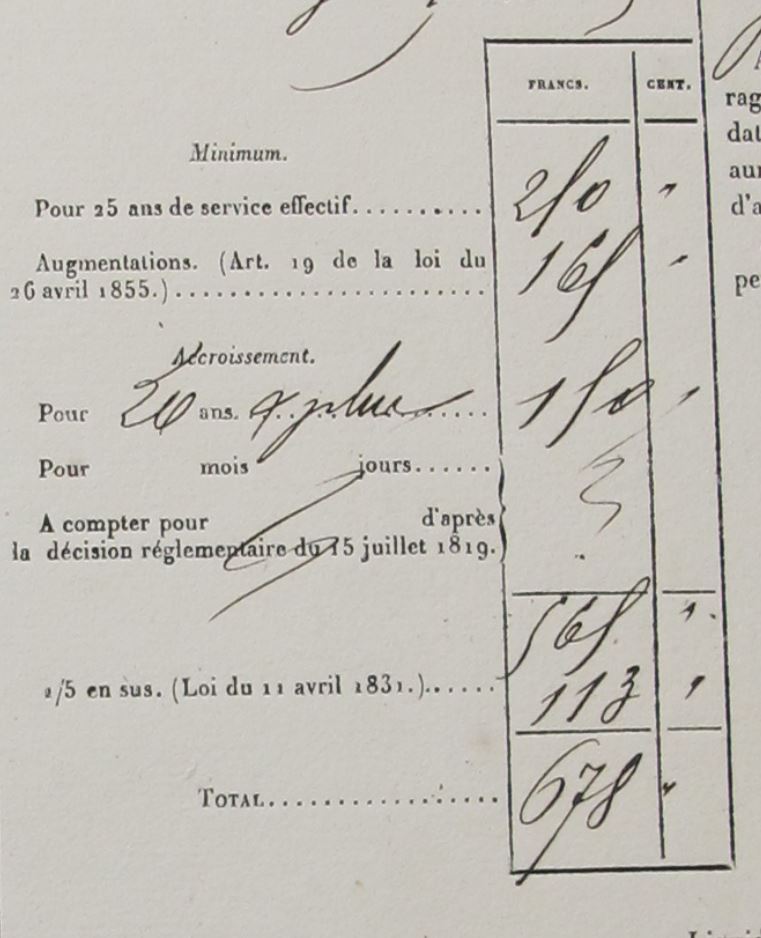 FRANCS. CENT.
Minimum.
Pour 25 ans de service effectif........... 250 "
Augmentations. (Art. 19 de la loi du
26 avril 1855.)....................... 165 "
Accroissement.
Pour 20 ans. & plus ...... 150 "
Pour mois jours......
A compter pour d'après
la décision réglementaire du 15 juillet 1819.
565 "
1/5 en sus. (Loi du 11 avril 1831.)...... 113 "
TOTAL.................. 678 "
rag
dat
d'a
pe